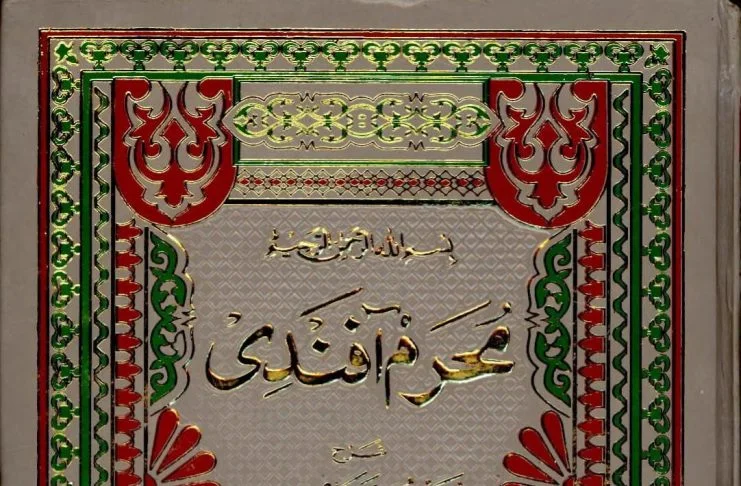 بسم الله الرحمن الرحيم
محرم آفندي
شرح